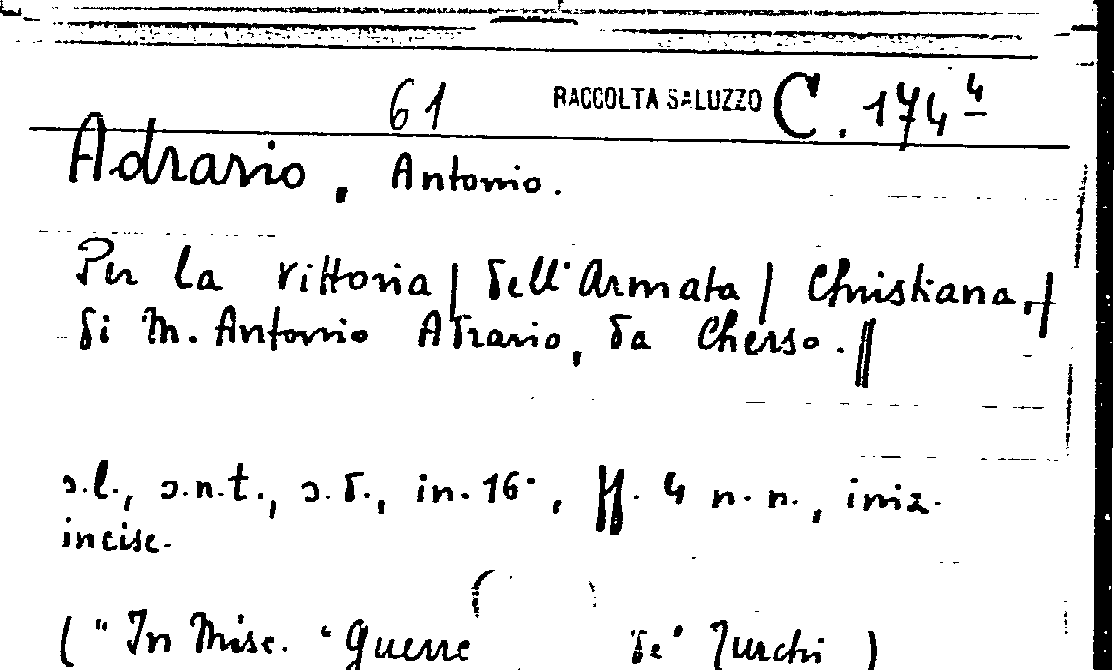 61 RACCOLTA SALUZZO C. 174 4
Adrario, Antonio.
Per la vittoria | dell'Armata | Christiana, |
di M. Antonio Adrario, da Cherso. ||
s.l., s.n.t., s.d., in-16°, ff. 4 n.n., iniz.
incise.
( "In Misc. "Guerre de' Turchi )